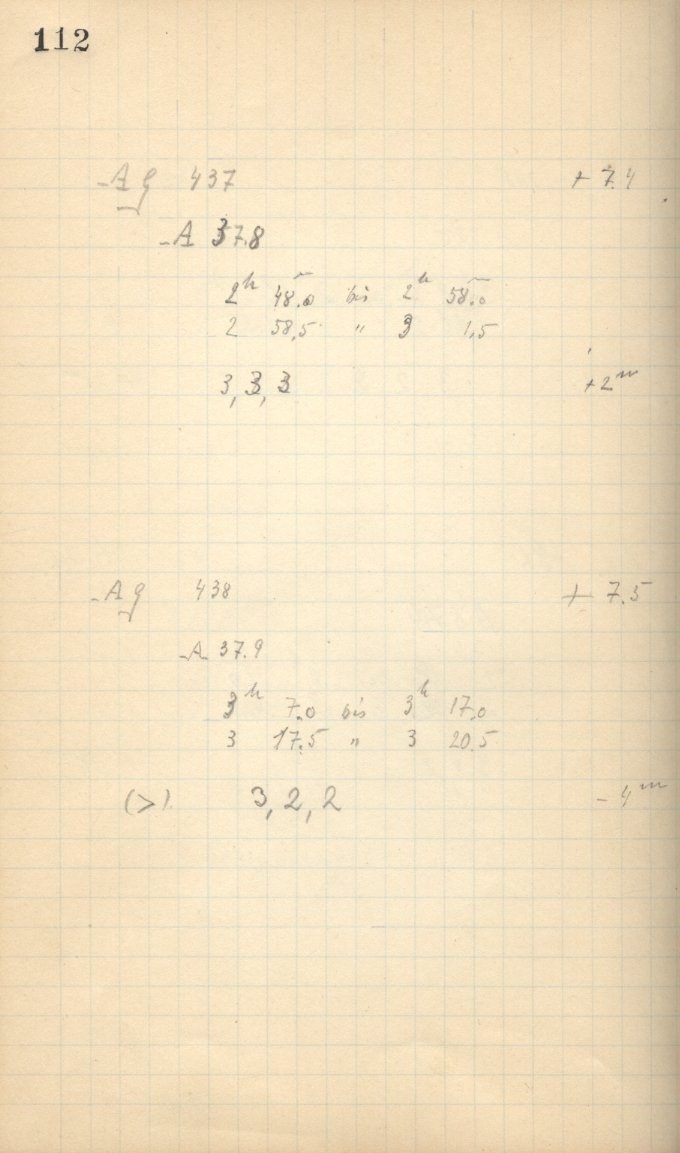 112
Ag 437 + 7.4
A 37.8
2h 48.0 bis 2h 58.0
2 58,5 " 3 1,5
3, 3, 3 +2m
Ag 438 + 7.5
A 37.9
3h 7.0 bis 3h 17.0
3 17.5 " 3 20.5
(>) 3, 2, 2 - 4m